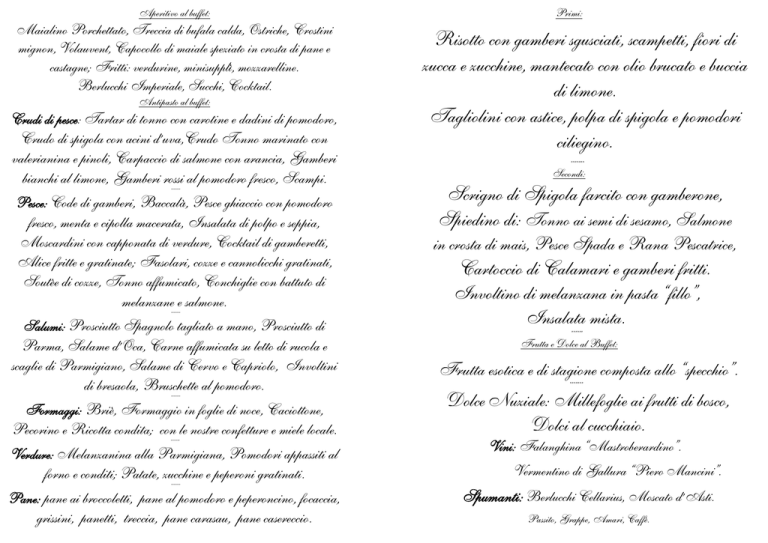 Aperitivo al buffet:
Maialino Porchettato, Treccia di bufala calda, Ostriche, Crostini
mignon, Volauvent, Capocollo di maiale speziato in crosta di pane e
castagne; Fritti: verdurine, minisupplì, mozzarelline.
Berlucchi Imperiale, Succhi, Cocktail.
Antipasto al buffet:
Crudi di pesce: Tartar di tonno con carotine e dadini di pomodoro,
Crudo di spigola con acini d'uva, Crudo Tonno marinato con
valerianina e pinoli, Carpaccio di salmone con arancia, Gamberi
bianchi al limone, Gamberi rossi al pomodoro fresco, Scampi.
Pesce: Code di gamberi, Baccalà, Pesce ghiaccio con pomodoro
fresco, menta e cipolla macerata, Insalata di polpo e seppia,
Moscardini con capponata di verdure, Cocktail di gamberetti,
Alice fritte e gratinate; Fasolari, cozze e cannolicchi gratinati,
Soutèe di cozze, Tonno affumicato, Conchiglie con battuto di
melanzane e salmone.
Salumi: Prosciutto Spagnolo tagliato a mano, Prosciutto di
Parma, Salame d'Oca, Carne affumicata su letto di rucola e
scaglie di Parmigiano, Salame di Cervo e Capriolo, Involtini
di bresaola, Bruschette al pomodoro.
Formaggi: Briè, Formaggio in foglie di noce, Caciottone,
Pecorino e Ricotta condita; con le nostre confetture e miele locale.
Verdure: Melanzanina alla Parmigiana, Pomodori appassiti al
forno e conditi; Patate, zucchine e peperoni gratinati.
Pane: pane ai broccoletti, pane al pomodoro e peperoncino, focaccia,
grissini, panetti, treccia, pane carasau, pane casereccio.
Primi:
Risotto con gamberi sgusciati, scampetti, fiori di
zucca e zucchine, mantecato con olio brucato e buccia
di limone.
Tagliolini con astice, polpa di spigola e pomodori
ciliegino.
Secondi:
Scrigno di Spigola farcito con gamberone,
Spiedino di: Tonno ai semi di sesamo, Salmone
in crosta di mais, Pesce Spada e Rana Pescatrice,
Cartoccio di Calamari e gamberi fritti.
Involtino di melanzana in pasta "fillo",
Insalata mista.
Frutta e Dolce al Buffet:
Frutta esotica e di stagione composta allo "specchio".
Dolce Nuziale: Millefoglie ai frutti di bosco,
Dolci al cucchiaio.
Vini: Falanghina "Mastroberardino".
Vermentino di Gallura "Piero Mancini".
Spumanti: Berlucchi Cellarius, Moscato d'Asti.
Passito, Grappe, Amari, Caffè.